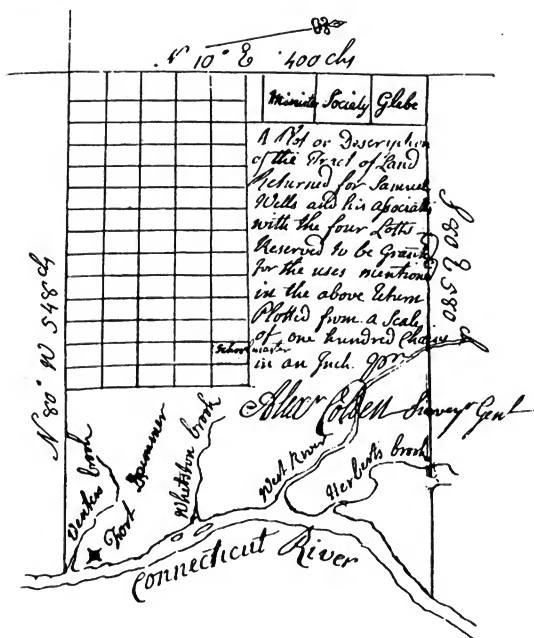 N 10° E 400 chs
Minister Society Glebe
A Plot or Description
of the Tract of Land
Returned for Samuel
Wells and his associates
with the four Lotts
Reserved to be Granted
for the uses mentioned
in the above Return
Plotted from a Scale
of one hundred Chains
in an Inch. pr
Alexr Colden Surveyr Genl
School master
N 80° W 548 ch
S 80 E 580 ch
Venters brook
Fort Dummer
Whitston brook
West River
Herberts brook
Connecticut River